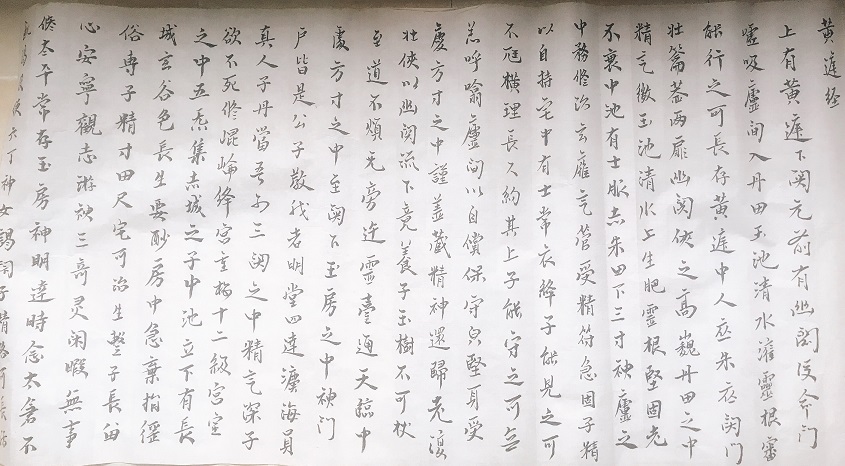 黄庭经
上有黄庭下関元前有幽闕後命门
嘘吸廬间入丹田玉池清水灌靈根審
能行之可長存黄庭中人衣朱衣関门
壮籥蓋两扉幽闕俠之高巍丹田之中
精气微玉池清水上生肥靈根堅固老
不衰中池有士服赤朱田下三寸神廬之
中務修治玄雁气管受精符急固子精
以自持宅中有士常衣絳子能見之可
不冠横理長尺約其上子能守之可無
恙呼噏廬间以自償保守貞堅身受
慶方寸之中謹蓋藏精神還歸老復
壮俠以幽闕流下竟養子玉樹不可杖
至道不煩先旁迕靈臺通天臨中
處方寸之中至闕下玉房之中神门
户皆是公子教我者明堂四達濾海員
真人子丹當吾前三関之中精气深子
欲不死修崐崘絳宮重樓十二級宮室
之中五炁集赤城之子中池立下有長
城玄谷邑長生要眇房中急棄捐徭
俗専子精寸田尺宅可治生繫子長留
心安寧觀志游神三奇灵闲暇無事
修太平常存玉房神明達時念太倉不
六丁神女謁閉子精路可長活